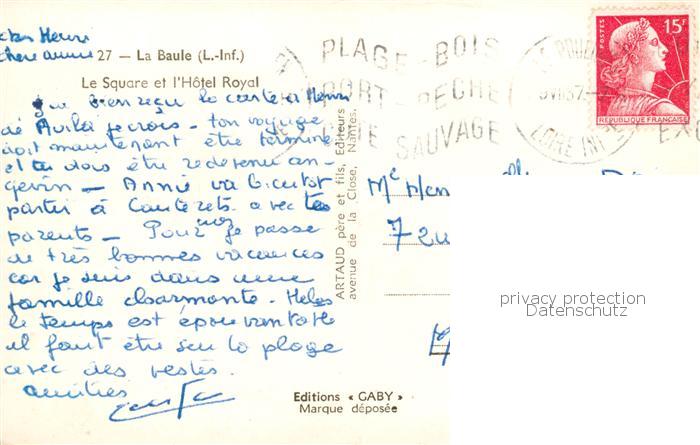 cher Henri
chère amie
27 — La Baule (L.-Inf.)
Le Square et l'Hôtel Royal
J'ai bien reçu la carte d'Henri
de Avila je crois - ton voyage
doit maintenant être terminé
et tu dois être redevenu an-
gevin - Annie va bientôt
partir à Cauterets avec
parents - Pour moi je passe
de très bonnes vacances
car je suis dans une
famille charmante - Hélas
le temps est épouvantable
il faut être sur la plage
avec des vestes.
amitiés
ARTAUD père et fils, Editeurs
avenue de la Close, Nantes.
Editions « GABY »
Marque déposée
PLAGE - BOIS
PORT - PECHE
COTE SAUVAGE
LOIRE INF
15F
POSTES
REPUBLIQUE FRANÇAISE
EX
7
privacy protection
Datenschutz